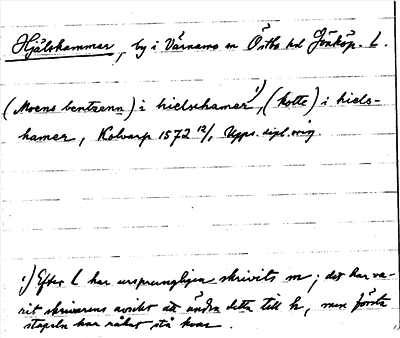 Hjälshammar, by i Värnamo sn Östbo hd Jönköp. L.
(Moens bentzenn) i hielsehamer¹⁾, (Kotte) i hiels-
hamer, Kolvarp 1572 12/1, Upps. dipl. orig.
¹⁾ Efter l har ursprungligen skrivits m; det har va-
rit skrivarens avsikt att ändra detta till h, men första
stapeln har råkat stå kvar.